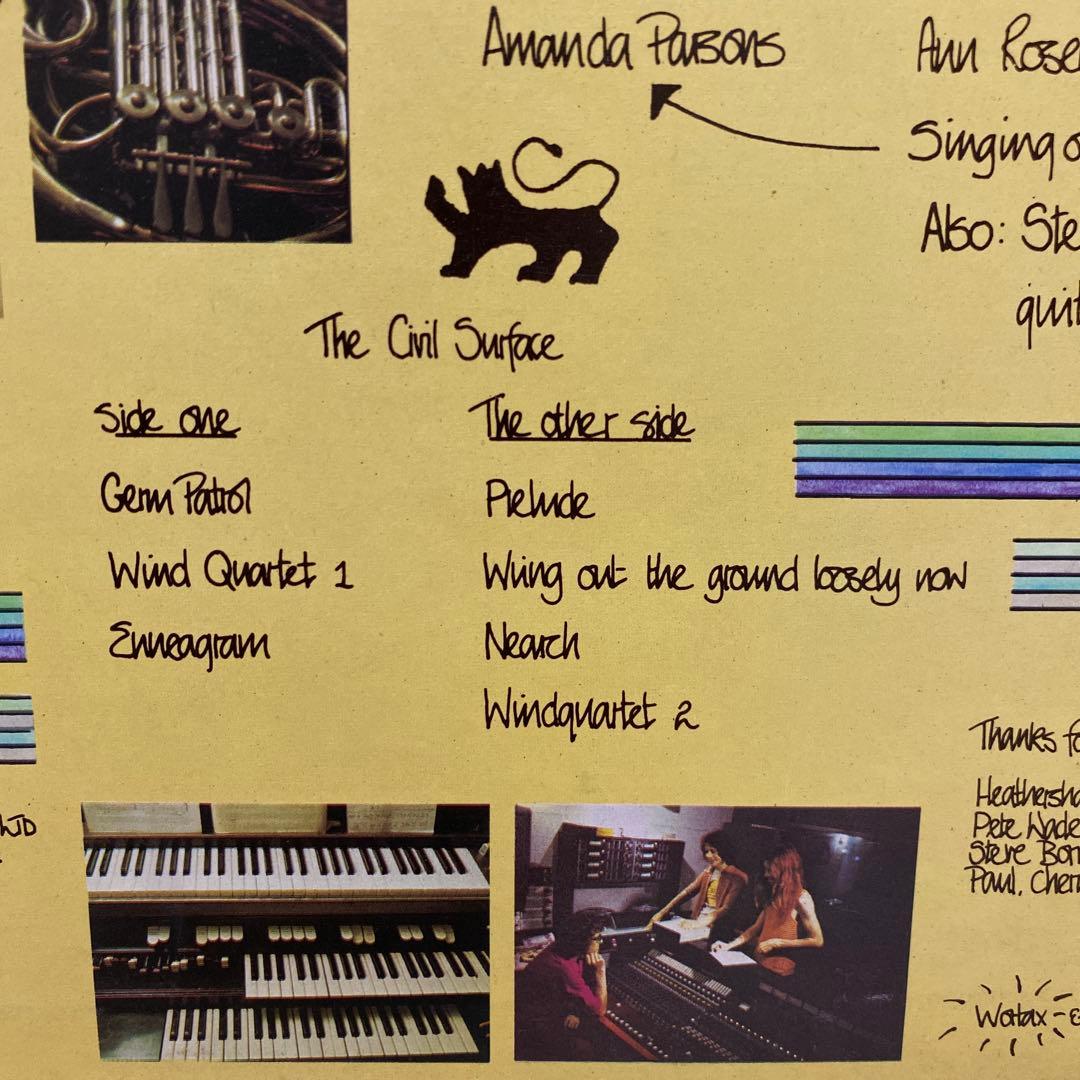 Amanda Parsons
Ann
Singing
Also:
The Civil Surface
Side one
Germ Patrol
Wind Quartet 1
Enneagram
The other side
Prelude
Wring out the ground loosely now
Nearch
Windquartet 2
Thanks
Pete Wade
Steve
Paul,
LTD